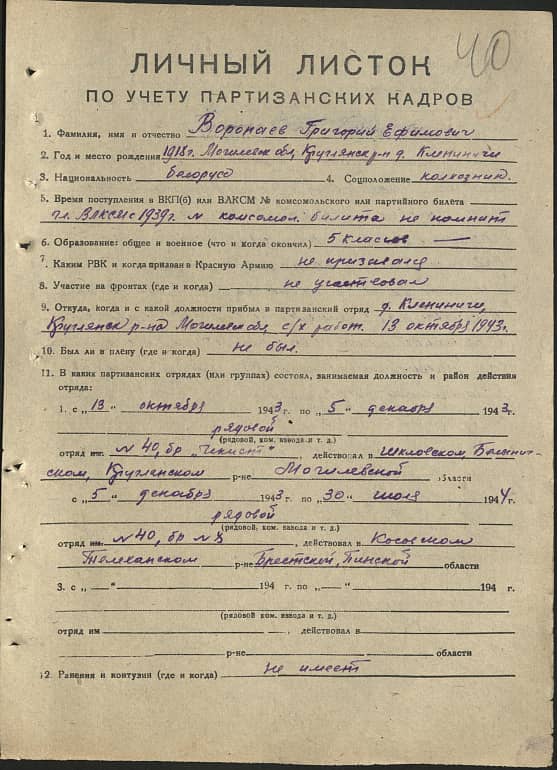 40
ЛИЧНЫЙ ЛИСТОК
ПО УЧЕТУ ПАРТИЗАНСКИХ КАДРОВ
1. Фамилия, имя и отчество Воропаев Григорий Ефимович
2. Год и место рождения 1918 г. Могилевск обл Круглянск р-н д. Клениничи
3. Национальность белорус 4. Соцположение колхозник.
5. Время поступления в ВКП(б) или ВЛКСМ № комсомольского или партийного билета
чл. ВЛКСМ с 1939 г. № комсомол. билита не помнит
6. Образование: общее и военное (что и когда окончил) 5 класов —
7. Каким РВК и когда призван в Красную Армию не призывался
8. Участие на фронтах (где и когда) не участвовал
9. Откуда, когда и с какой должности прибыл в партизанский отряд д. Клениничи,
Круглянск р-на Могилевск обл с/х работ. 13 октября 1943 г.
10. Был ли в плену (где и когда) не был.
11. В каких партизанских отрядах (или группах) состоял, занимаемая должность и район действия
отряда:
1. с „13" октября 1943 г. по „5" декабря 1943 г.
рядовой
(рядовой, ком. взвода и т. д.)
отряд им. N 40, бр "Чекист", действовал в Шкловском
ском, Круглянском р-не Могилевской области
с „5" декабря 1943 г. по „30" июля 1944 г.
рядовой
(рядовой, ком. взвода и т. д.)
отряд им. N 40, бр N 8, действовал в Косовском
Телеханском р-не Брестской, Пинской области
3. с „ " 194 г. по „ " 194 г.
(рядовой, ком. взвода и т. д.)
отряд им , действовал в
р-не области
12. Ранения и контузии (где и когда) не имеет